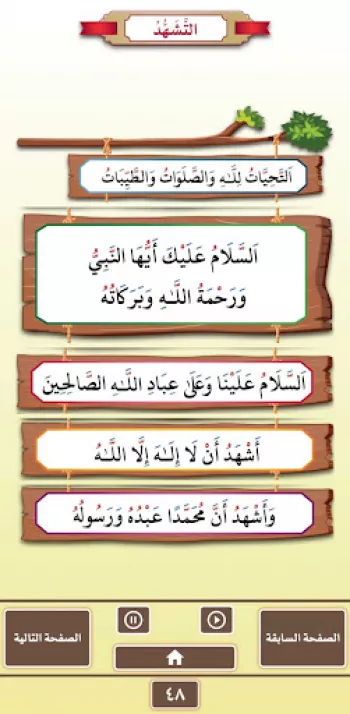 التَّشَهُّدُ
اَلتَّحِيَّاتُ لِلَّٰهِ وَالصَّلَوَاتُ وَالطَّيِّبَاتُ
اَلسَّلَامُ عَلَيْكَ أَيُّهَا النَّبِيُّ
وَرَحْمَةُ اللَّٰهِ وَبَرَكَاتُهُ
اَلسَّلَامُ عَلَيْنَا وَعَلَىٰ عِبَادِ اللَّٰهِ الصَّالِحِينَ
أَشْهَدُ أَنْ لَا إِلَٰهَ إِلَّا اللَّٰهُ
وَأَشْهَدُ أَنَّ مُحَمَّدًا عَبْدُهُ وَرَسُولُهُ
الصفحة السابقة
الصفحة التالية
٤٨